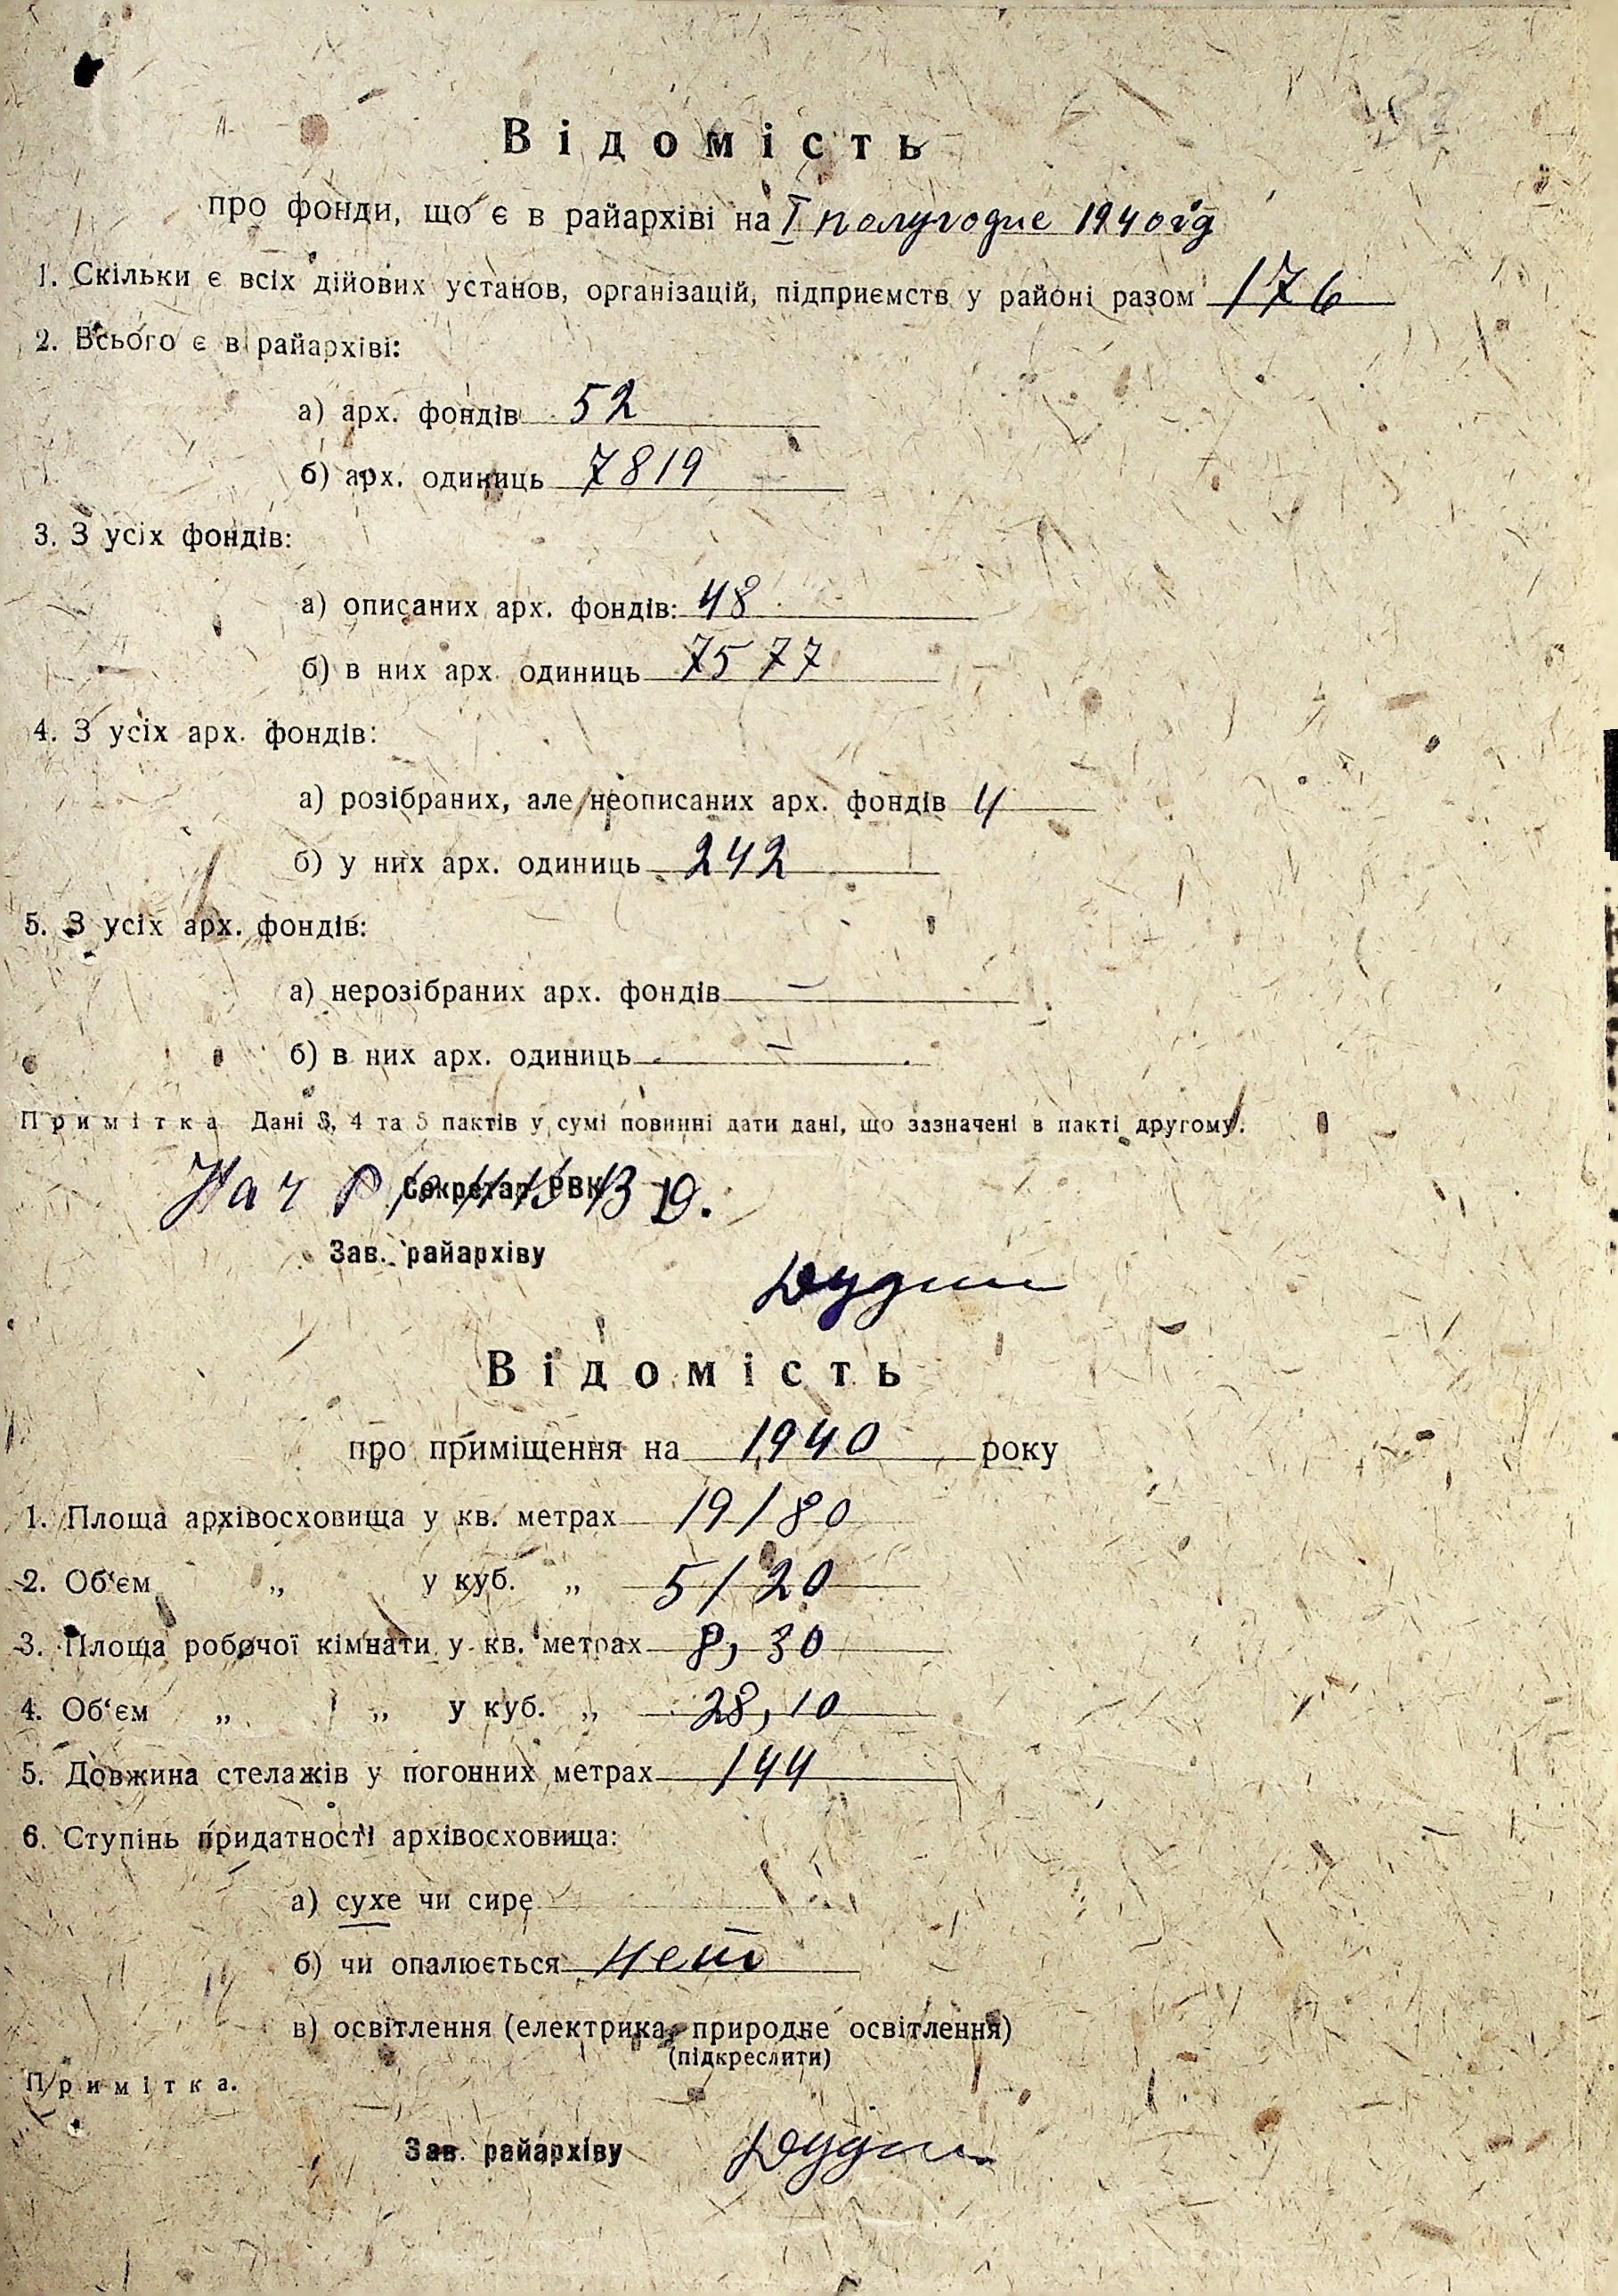 Відомість
про фонди, що є в райархіві на I полугодие 1940 гд
1. Скільки є всіх дійових установ, організацій, підприємств у районі разом 176
2. Всього є в райархіві:
а) арх. фондів 52
б) арх. одиниць 7819
3. З усіх фондів:
а) описаних арх. фондів: 48
б) в них арх. одиниць 7577
4. З усіх арх. фондів:
а) розібраних, але неописаних арх. фондів 4
б) у них арх. одиниць 242
5. З усіх арх. фондів:
а) нерозібраних арх. фондів —
б) в них арх. одиниць —
Примітка Дані 3, 4 та 5 пактів у сумі повинні дати дані, що зазначені в пакті другому.
Нач Секретар РВК
Зав. райархіву
Відомість
про приміщення на 1940 року
1. Площа архівосховища у кв. метрах 19/80
2. Об'єм „ у куб. „ 5/20
3. Площа робочої кімнати у кв. метрах 8,30
4. Об'єм „ „ у куб. „ 28,10
5. Довжина стелажів у погонних метрах 144
6. Ступінь придатності архівосховища:
а) сухе чи сире
б) чи опалюється нет
в) освітлення (електрика, природне освітлення)
(підкреслити)
Примітка.
Зав. райархіву